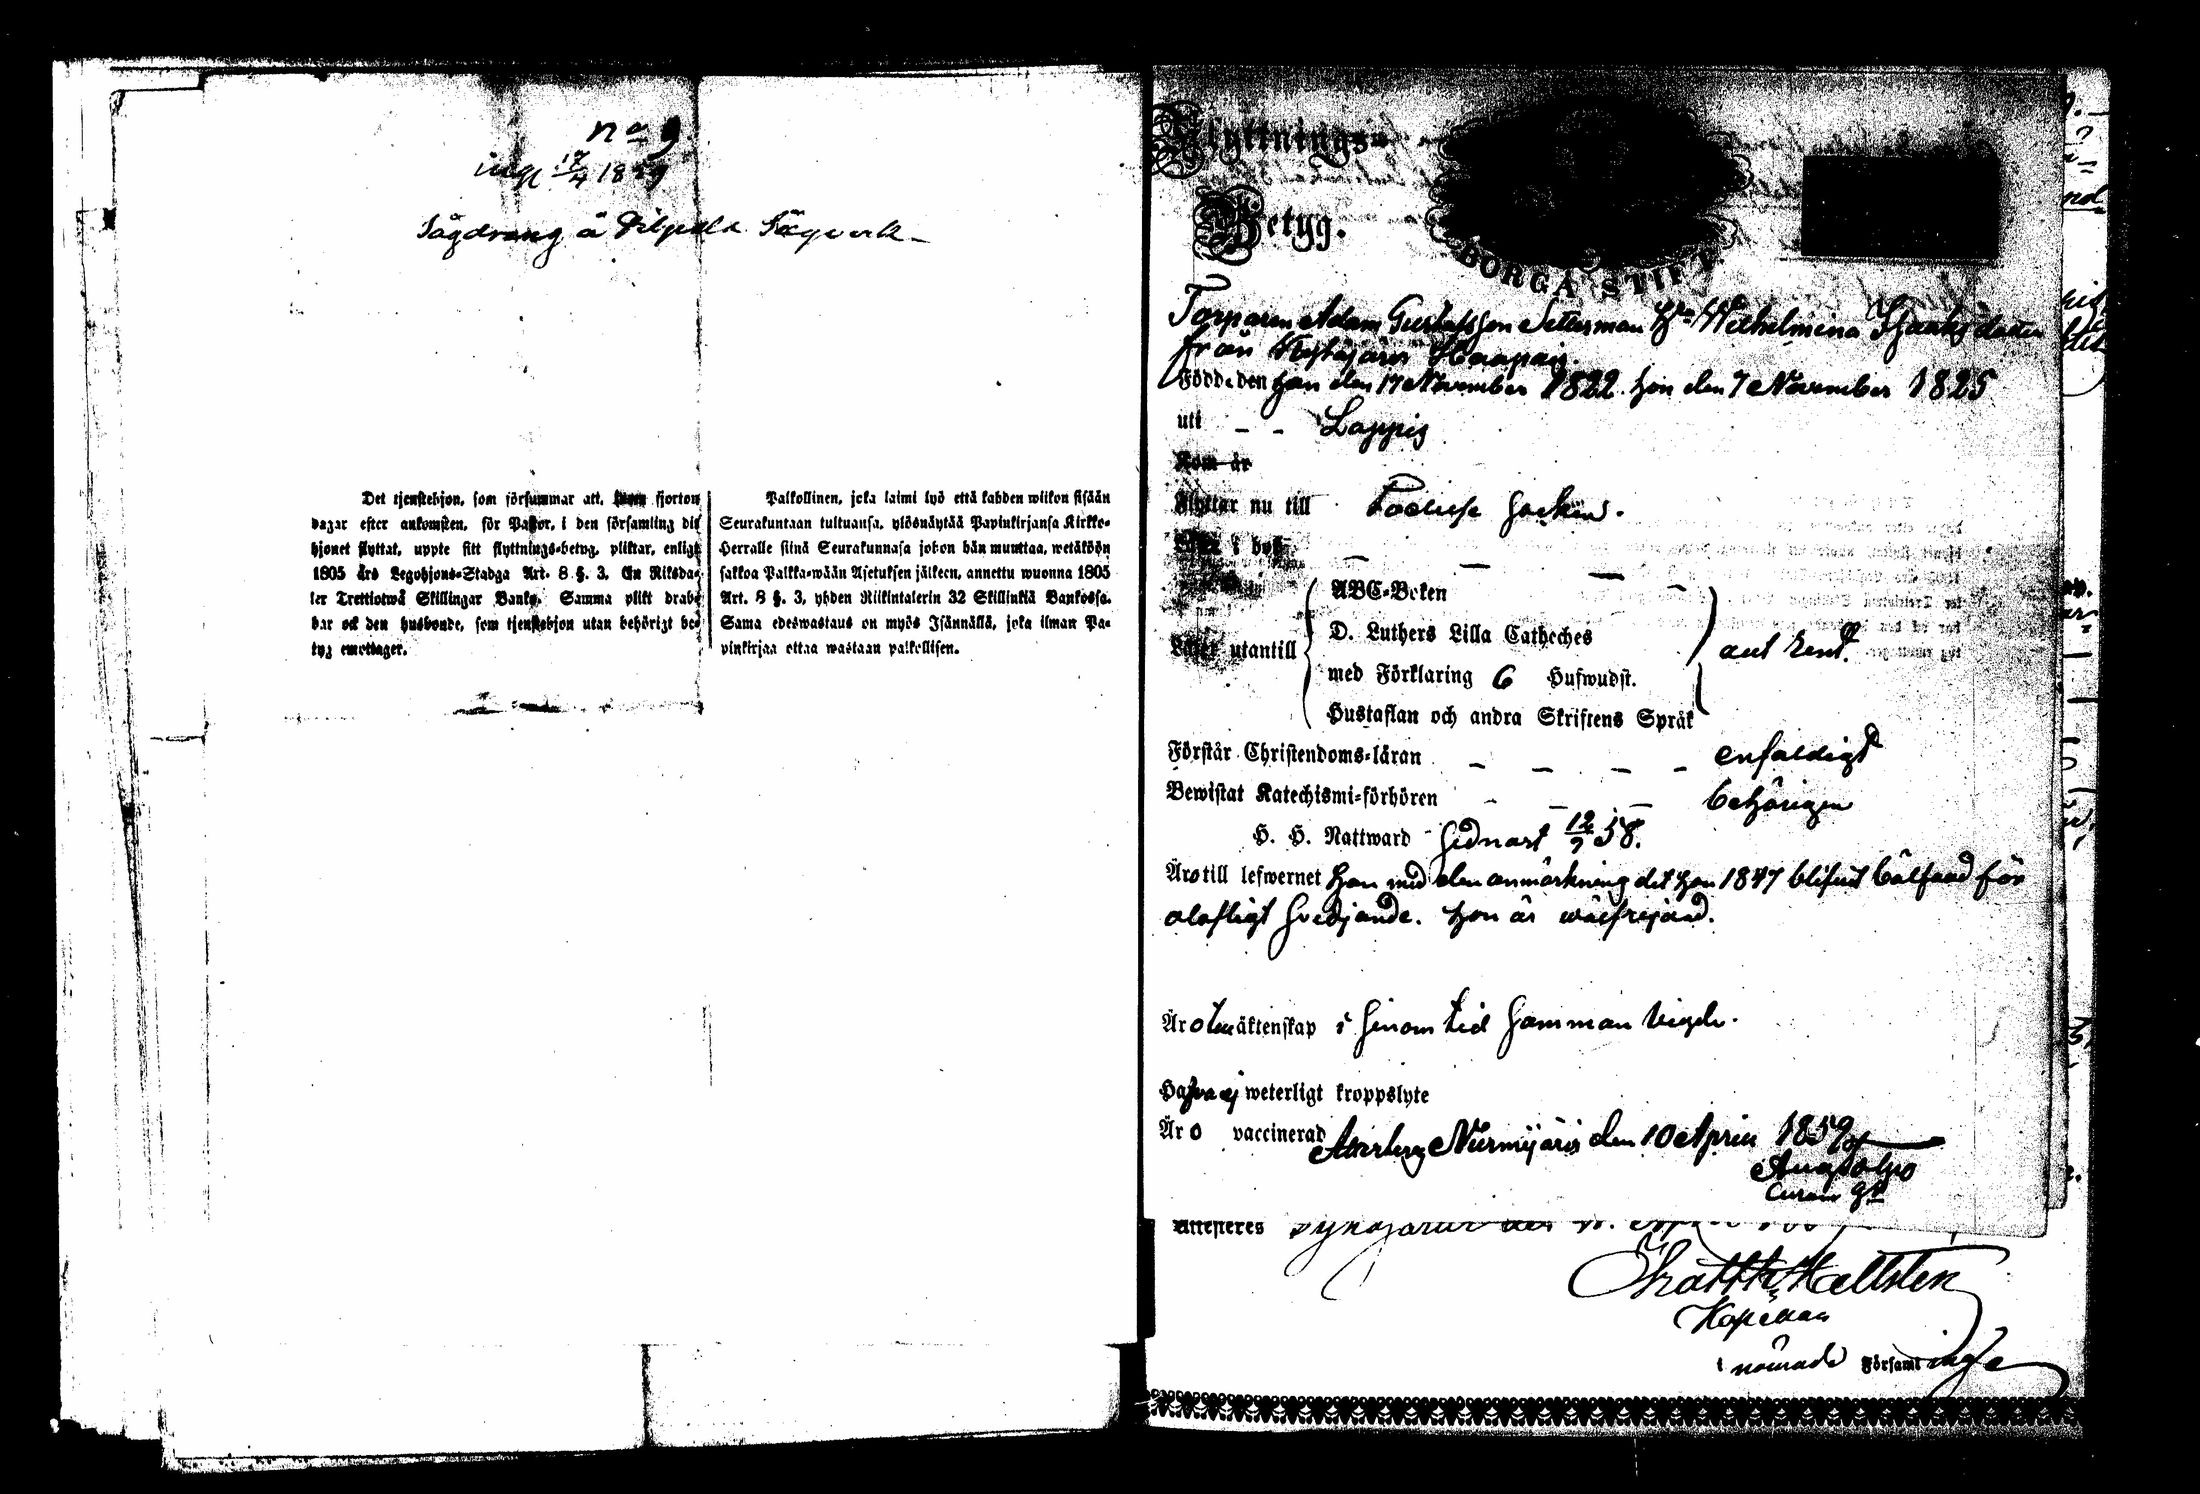 No 9
ing 17/4 1859
Sågdräng å Sågverk
Det tjenstehjon, som försummar att, inom fjorton
dagar efter ankomsten, för Pastor, i den församling dit
hjonet flyttat, uppte sitt flyttnings-betyg, pliktar, enligt
1805 års Legohjons-Stadga Art. 8 §. 3. En Riksda-
ler Trettiotwå Skillingar Banko. Samma plikt drabe
bar ock den husbonde, som tjenstehjon utan behörigt be-
tyg emottager.
Palkollinen, joka laimi lyö että kahden wiikon sisään
Seurakuntaan tultuansa, ylösnäytää Papinkirjansa Kirkko-
Herralle siinä Seurakunnasa johon hän muuttaa, wetäköön
sakkoa Palkka-wään Asetuksen jälkeen, annettu wuonna 1805
Art. 8 §. 3, yhden Riikintalerin 32 Skillinkiä Bankossa.
Sama edeswastaus on myös Isännällä, joka ilman Pa-
pinkirjaa ottaa wastaan palkollisen.
Flyttnings-
Betyg.
BORGÅ STIFT
Torparen Adam Gustafsson Wilhelmina Isaaksdotter
från
Födde den han den 17 November 1822. hon den 7 November 1825
uti - - Loppis
Kom år
Flyttar nu till socken.
ABC-Boken
Läser utantill D. Luthers Lilla Catheches
med Förklaring 6 Hufwudst.
Hustaflan och andra Skriftens Språk
Förstår Christendoms-läran - - - - enfaldigt
Bewistat Katechismi-förhören - - - behörigen
H. H. Nattward sednast 12/9 58.
Äro till lefwernet han med den anmärkning det han 1847 blifvit bötfäld för
olofligt svedjande. hon är wälfrejdad.
Äro äktenskap i sinom tid samman vigde.
Hafva ej weterligt kroppslyte
Äro vaccinerad
Nurmijärvi den 10 April 1859
Attesteres
Hellsten
Kapellan
i nämnde Församlinge